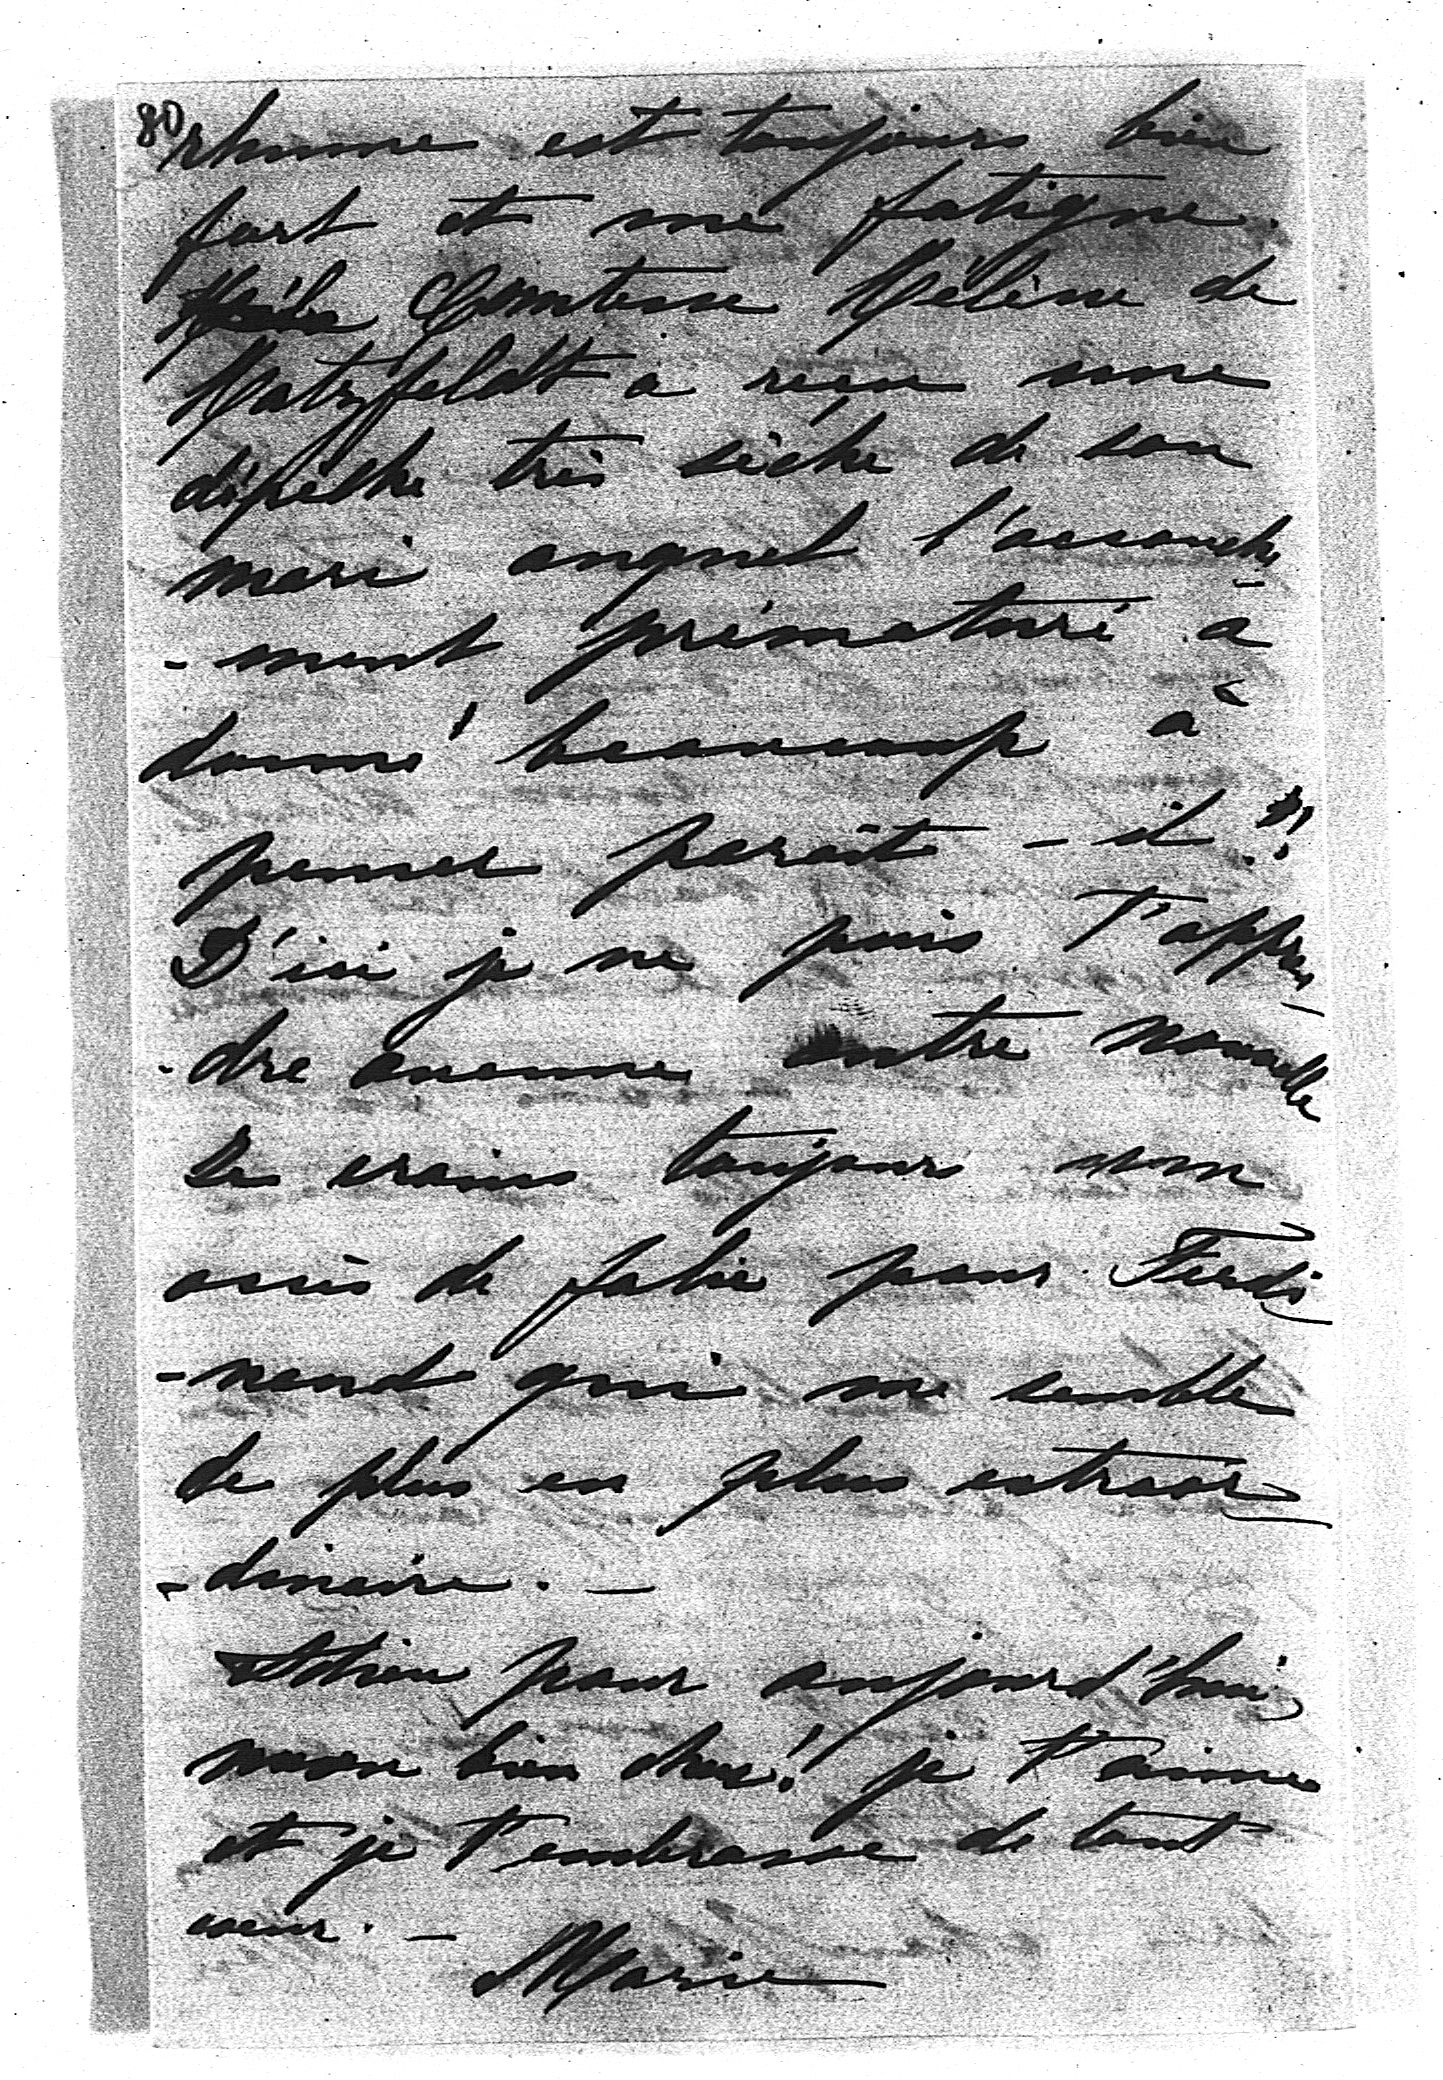 80
rhume est toujours bien
fort et me fatigue.
Comtesse Hélène de
Hatzfeldt a reçu une
dépêche très sèche de son
mari auquel l'accouche
-ment prématuré a
donné beaucoup à
penser paraît-il!!
D'ici je ne puis t'appren
-dre aucune autre nouvelle
Je crains toujours un
accès de folie pour Ferdi
-nand qui me semble
de plus en plus extraor
-dinaire. —
Adieu pour aujourd'hui,
mon bien cher! je t'aime
et je t'embrasse de tout
cœur. —
Marie